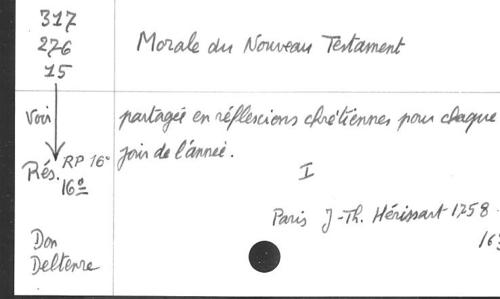 317
276
15
Morale du Nouveau Testament
Voir
partagée en réflexions chrétiennes pour chaque
jour de l'année.
Rés. RP 16°
16°
I
Paris J-Th. Hérissart 1758.
163
Don
Deltenre